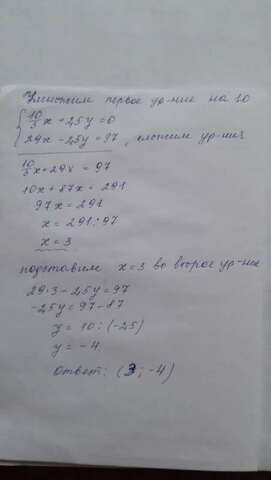 Умножим первое ур-ние на 10
{ 10/3 x + 25y = 0
29x - 25y = 97 , сложим ур-ния
10/3 x + 29x = 97
10x + 87x = 291
97x = 291
x = 291 : 97
x = 3
подставим x = 3 во второе ур-ние
29·3 - 25y = 97
-25y = 97 - 87
y = 10 : (-25)
y = -4
Ответ: (3; -4)